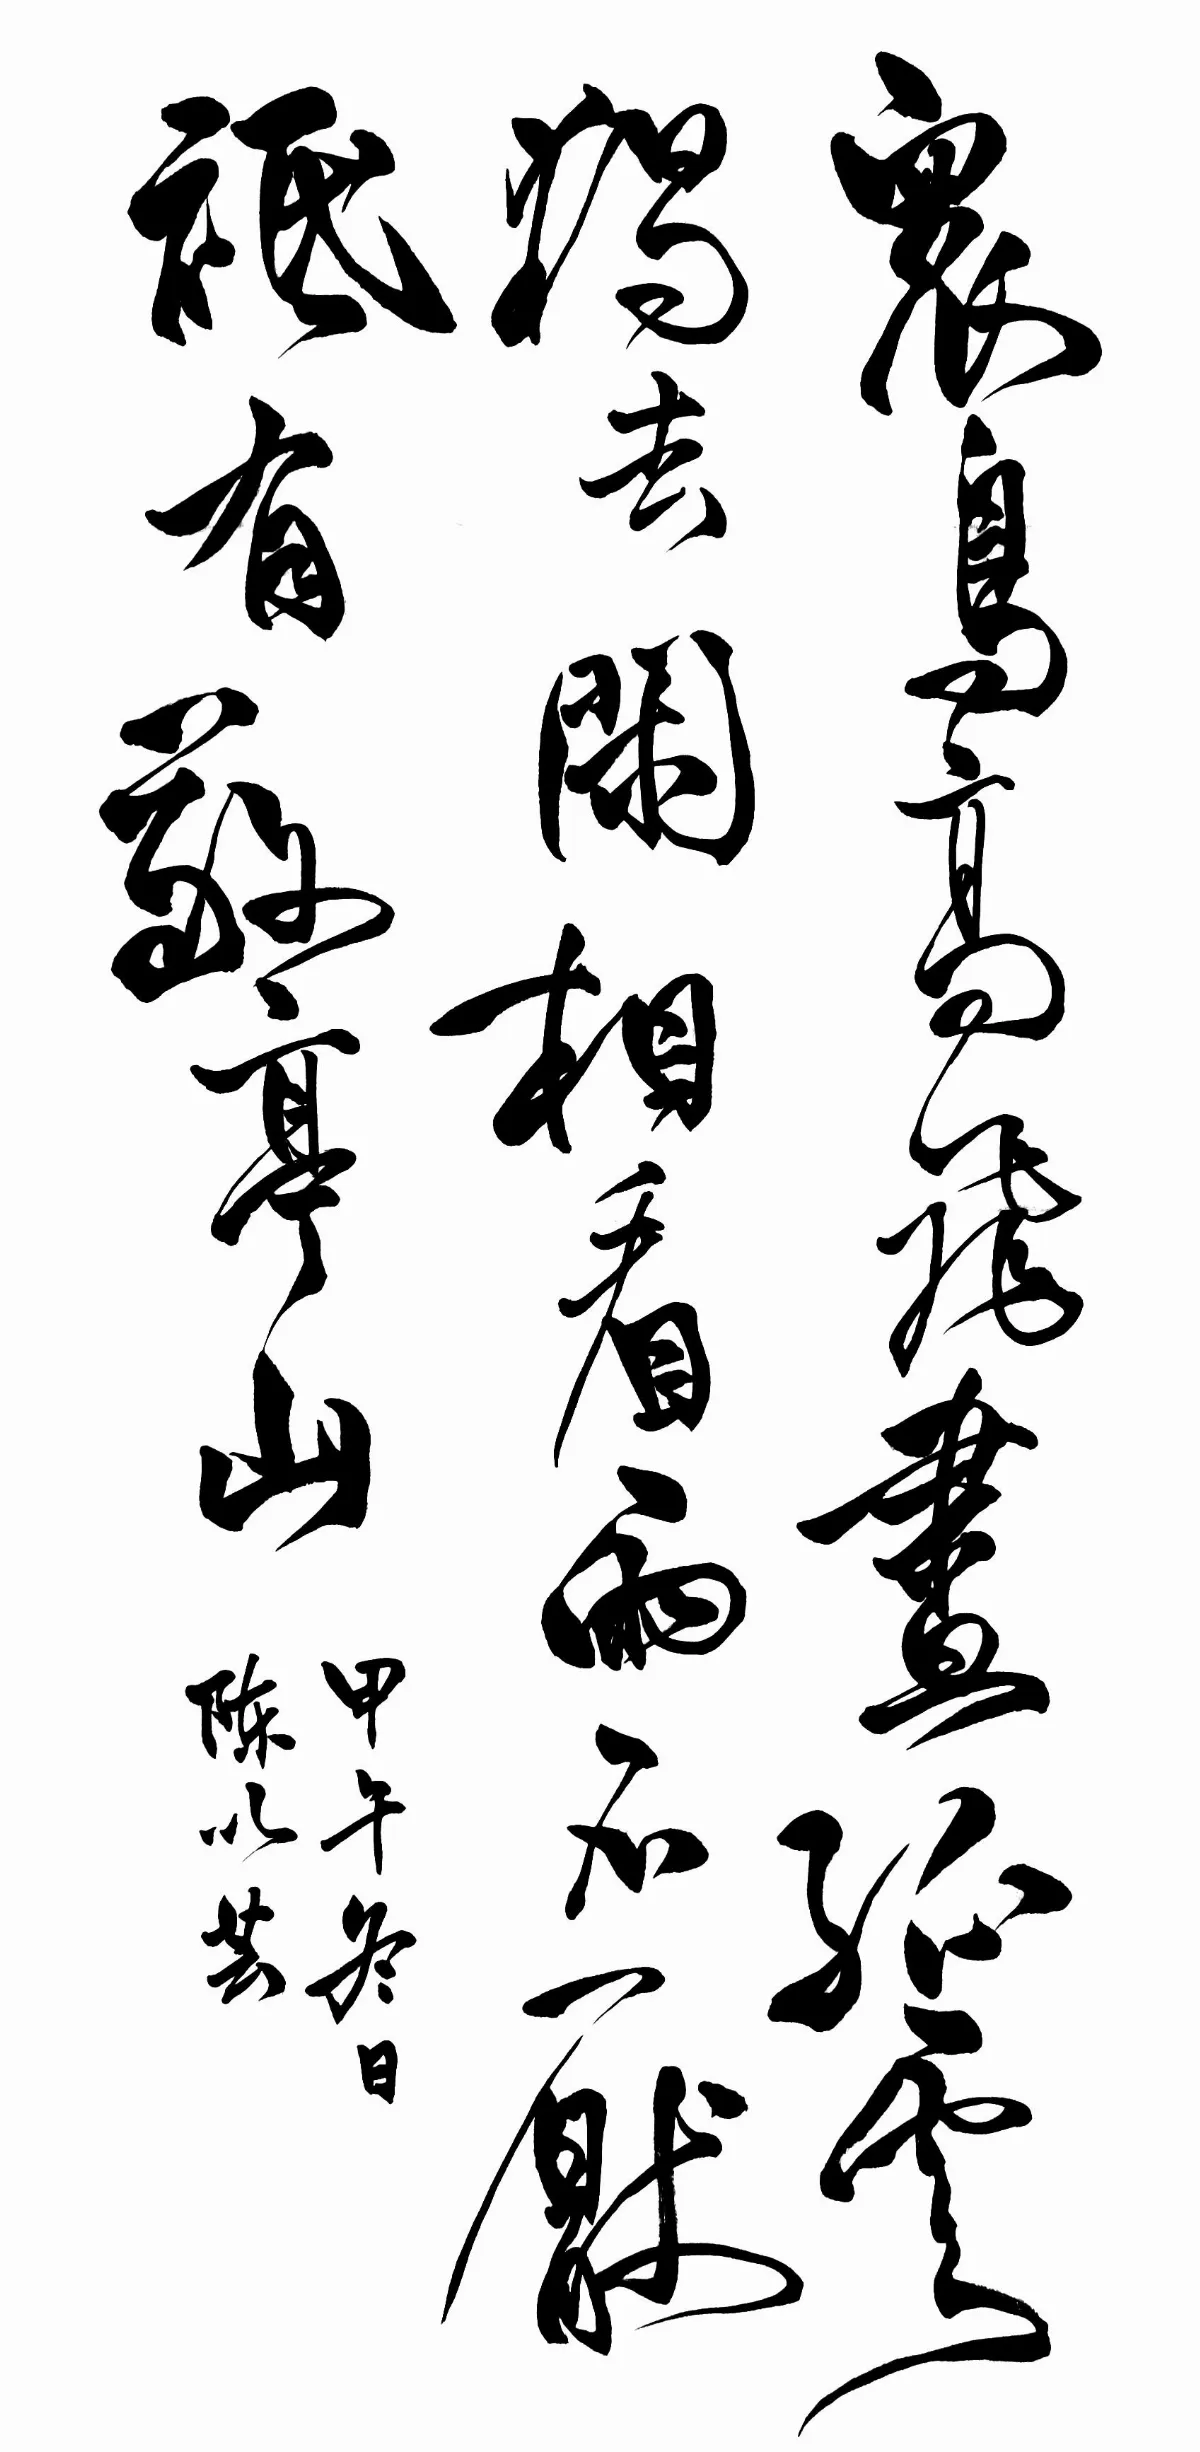 衆鳥高飛盡孤雲
獨去閑相看兩不厭
祇有敬亭山
甲午冬日
陈以芸